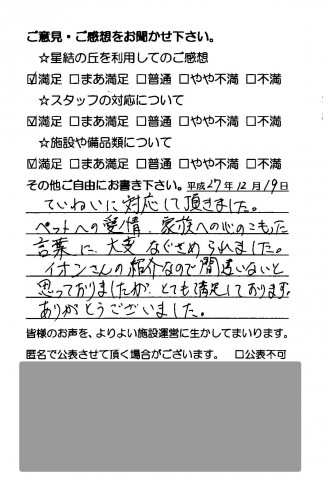 ご意見・ご感想をお聞かせ下さい。
☆星結の丘を利用してのご感想
☑満足 □まあ満足 □普通 □やや不満 □不満
☆スタッフの対応について
☑満足 □まあ満足 □普通 □やや不満 □不満
☆施設や備品類について
☑満足 □まあ満足 □普通 □やや不満 □不満
その他ご自由にお書き下さい。平成27年12月19日
ていねいに対応して頂きました。
ペットへの愛情、家族への心のこもった
言葉に、大変なぐさめられました。
イオンさんの紹介なので間違いないと
思っておりましたが、とても満足しております。
ありがとうございました。
皆様のお声を、よりよい施設運営に生かしてまいります。
匿名で公表させて頂く場合がございます。 □公表不可